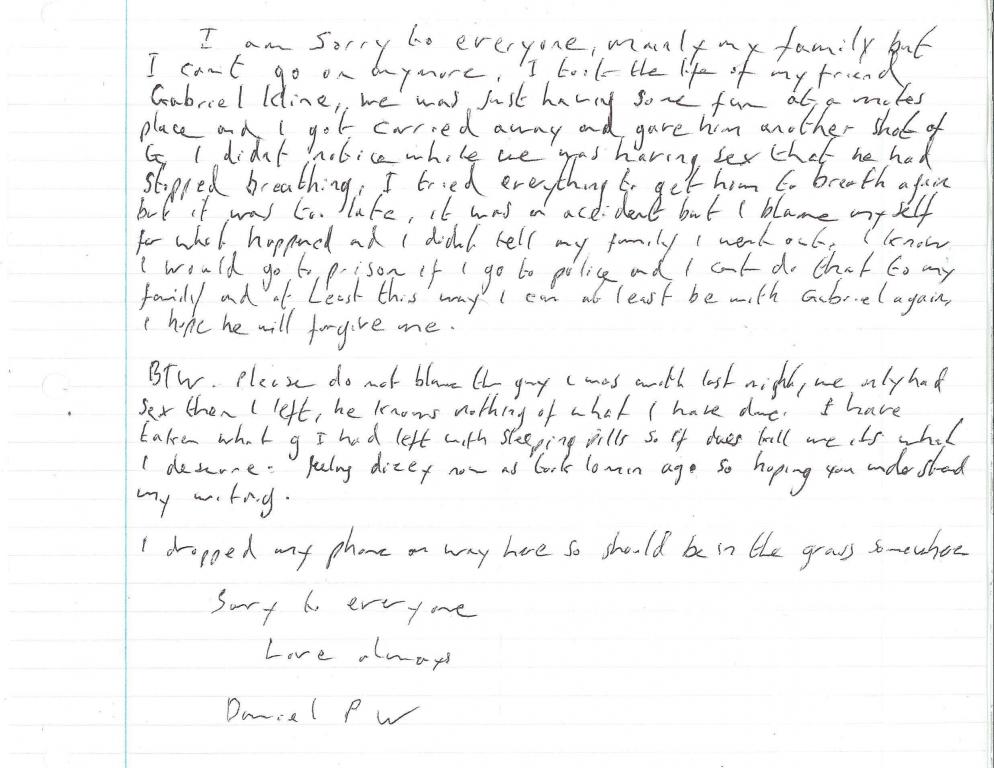 I am sorry to everyone, mainly my family but
I cant go on anymore, I took the life of my friend
Gabriel Kline, we was just having some fun at a mates
place and I got carried away and gave him another shot of
G, I didnt notice while we was having sex that he had
stopped breathing, I tried everything to get him to breath again
but it was too late, it was a accident but I blame my self
for what happened and I didnt tell my family I went out, I know
I would go to prison if I go to police and I cant do that to my
family and at least this way I can at least be with Gabriel again,
I hope he will forgive me.
BTW. Please do not blame the guy I was with last night, we only had
sex then I left, he knows nothing of what I have done. I have
taken what g I had left with sleeping pills so if it does kill me its what
I deserve. feeling dizey now as took 10 min ago so hoping you understand
my writing.
I dropped my phone on way here so should be in the grass somewhere
Sorry to everyone
Love always
Daniel P W